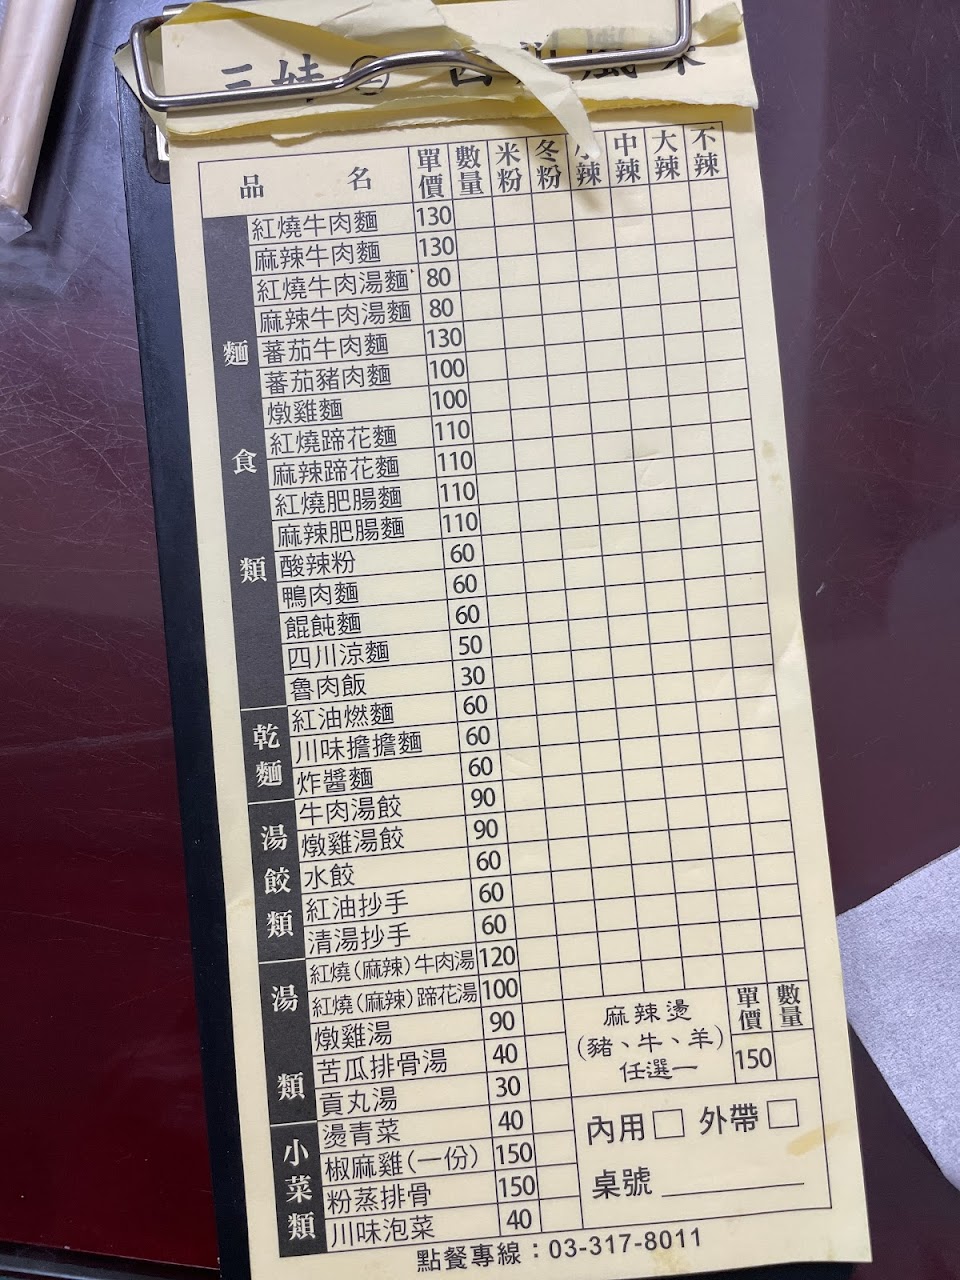 三妹 四川風味
品名 單價 數量 米粉 冬粉 小辣 中辣 大辣 不辣
麵食類
紅燒牛肉麵 130
麻辣牛肉麵 130
紅燒牛肉湯麵 80
麻辣牛肉湯麵 80
蕃茄牛肉麵 130
蕃茄豬肉麵 100
燉雞麵 100
紅燒蹄花麵 110
麻辣蹄花麵 110
紅燒肥腸麵 110
麻辣肥腸麵 110
酸辣粉 60
鴨肉麵 60
餛飩麵 60
四川涼麵 50
魯肉飯 30
乾麵
紅油燃麵 60
川味擔擔麵 60
炸醬麵 60
湯餃類
牛肉湯餃 90
燉雞湯餃 90
水餃 60
紅油抄手 60
清湯抄手 60
湯類
紅燒(麻辣)牛肉湯 120
紅燒(麻辣)蹄花湯 100
燉雞湯 90
苦瓜排骨湯 40
貢丸湯 30
小菜類
燙青菜 40
椒麻雞(一份) 150
粉蒸排骨 150
川味泡菜 40
麻辣燙
(豬、牛、羊)
任選一
單價 數量
150
內用□ 外帶□
桌號
點餐專線：03-317-8011